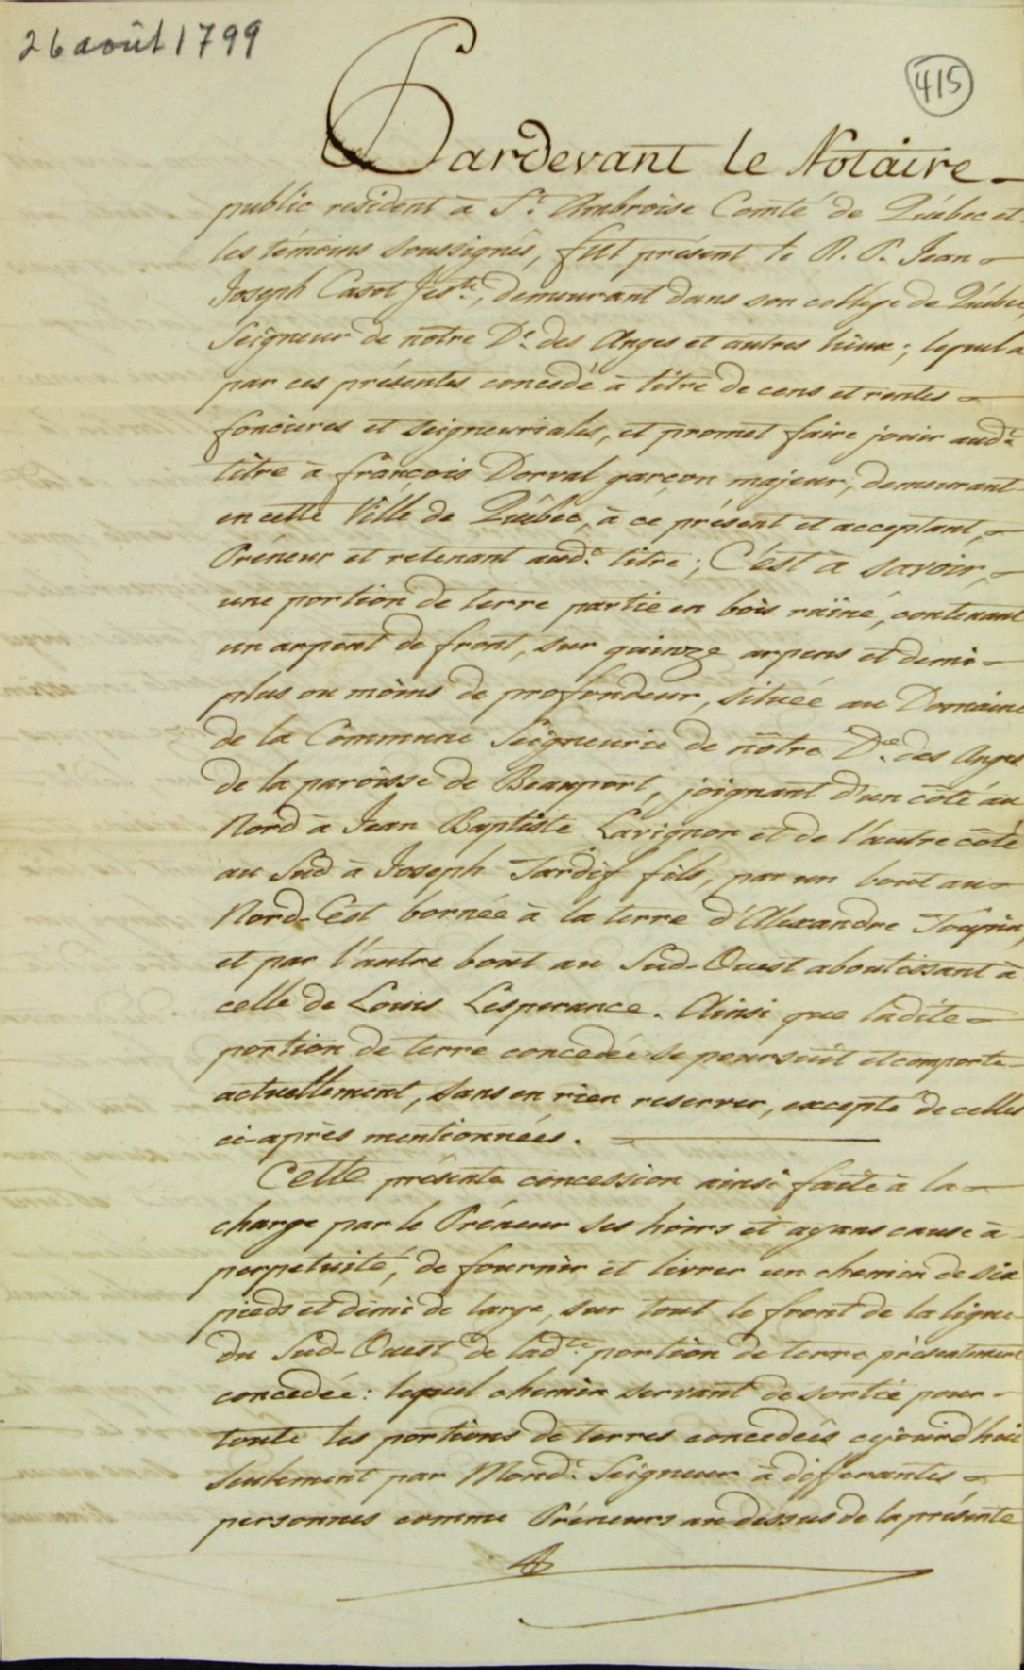 26 août 1799
415
Pardevant le Notaire
public resident à St. Ambroise Comté de Québec et
les témoins soussignés, fut présent le R. P. Jean
Joseph Casot Jeste., demeurant dans son collége de Québec,
Seigneur de nôtre De. des Anges et autres lieux; lequel a
par ces présentes concedé à titre de cens et rentes
foncieres et seigneuriales, et promet faire jouir audt.
titre à françois Dorval garçon majeur, demeurant
en cette Ville de Québec, à ce présent et acceptant,
Préneur et retenant audt. titre; C'est à savoir,
une portion de terre partie en bois ruïné, contenant
un arpent de front, sur quinze arpens et demi
plus ou moins de profondeur, située au Domaine
de la Commune Seigneurie de nôtre De. des Anges
de la paroisse de Beauport, joignant d'un côté au
Nord à Jean Baptiste Lavignon et de l'autre côté
au Sud à Joseph Tardif fils, par un bout au
Nord-Est bornée à la terre d'Alexandre Toupin,
et par l'autre bout au Sud-Ouest aboutissant à
celle de Louis Lesperance. Ainsi que ladite
portion de terre concedée se poursuit et comporte
actuellement, sans en rien reserver, excepté de celles
ci-après mentionnées.
Cette présente concession ainsi faite à la
charge par le Préneur ses hoirs et ayans cause à
perpetuité, de fournir et livrer un chemin de six
pieds et demi de large, sur tout le front de la ligne
du Sud-Ouest de ladte. portion de terre présentement
concedée: lequel chemin servant de sortie pour
toute les portions de terres concedeés cejourd'hui
seulement par Mondt. Seigneur à differantes
personnes comme Préneurs au dessus de la présente